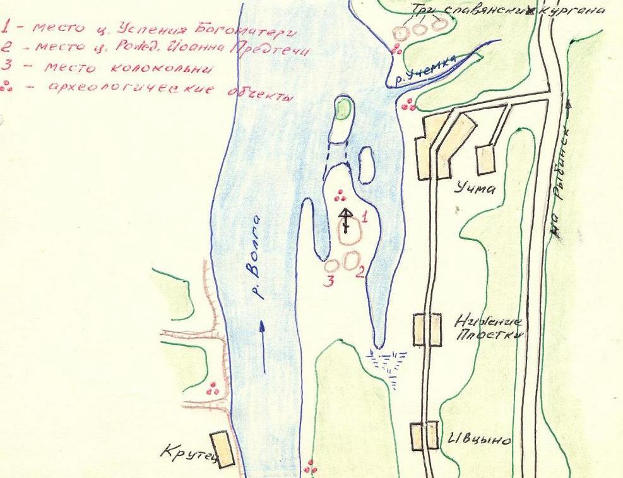 Три славянских кургана
1 - место ц. Успения Богоматери
2 - место ц. Рожд. Иоанна Предтечи
3 - место колокольни
- археологические объекты
р. Учемка
на Рыбинск
Учма
р. Волга
1
2
3
Нижние
Плостки
Ивцыно
Крутец